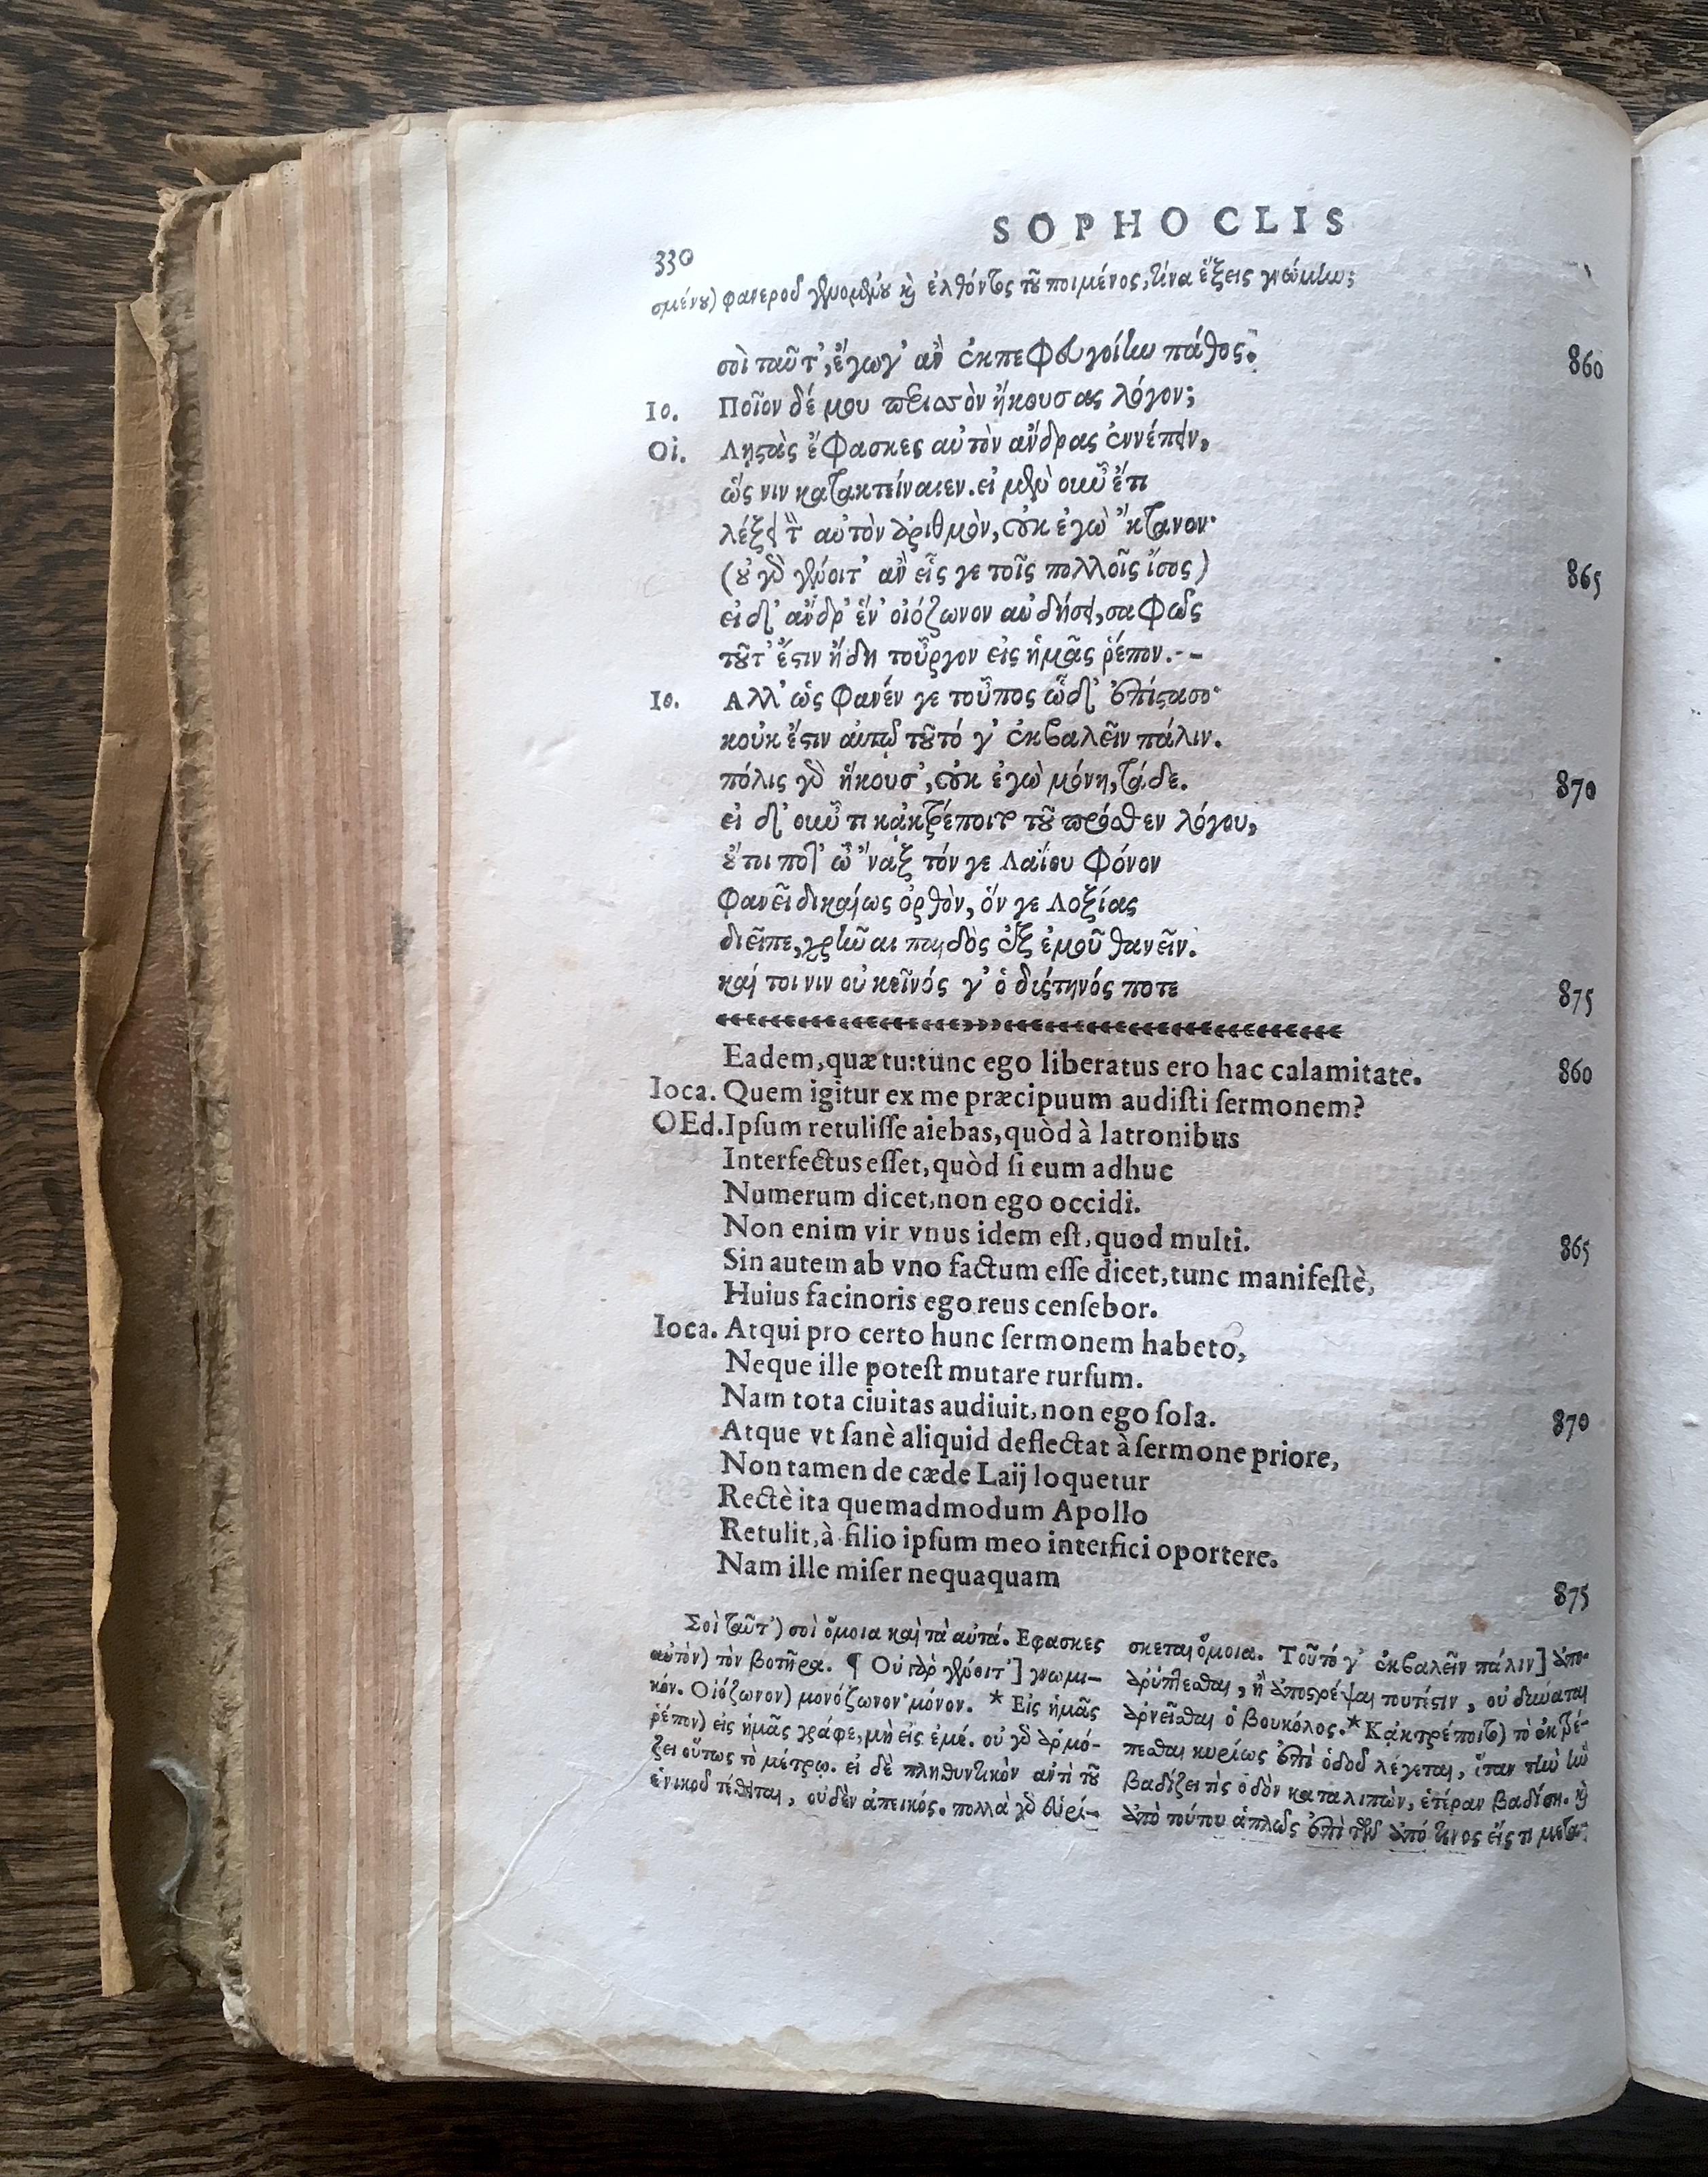 SOPHOCLIS
330
σμένου) φανεροῦ γενομένου καὶ ἐλθόντος τοῦ ποιμένος, τίνα ἕξεις γνώμην;
σοὶ ταῦτ', ἔγωγ' ἂν ἐκπεφευγοίην πάθος. 860
Ιο. Ποῖον δέ μου περισσὸν ἤκουσας λόγον;
Οἰ. Λῃστὰς ἔφασκες αὐτὸν ἄνδρας ἐννέπειν,
ὥς νιν κατακτείναιεν. εἰ μὲν οὖν ἔτι
λέξει τ̀ αὐτὸν ἀριθμὸν, οὐκ ἐγὼ 'κτανον·
(οὐ γὰρ γένοιτ' ἂν εἷς γε τοῖς πολλοῖς ἴσος) 865
εἰ δ' ἄνδρ' ἕν' οἰόζωνον αὐδήσει, σαφῶς
τοῦτ' ἔστιν ἤδη τοὖργον εἰς ἡμᾶς ῥέπον.--
Ιο. Αλλ' ὡς φανέν γε τοὖπος ὧδ' ἐπίστασο·
κοὐκ ἔστιν αὐτῷ τοῦτό γ' ἐκβαλεῖν πάλιν.
πόλις γὰρ ἤκουσ', οὐκ ἐγὼ μόνη, τάδε. 870
εἰ δ' οὖν τι κἀκτρέποιτο τοῦ πρόσθεν λόγου,
οὔτοι ποτ' ὦ 'ναξ τόν γε Λαΐου φόνον
φανεῖ δικαίως ὀρθὸν, ὅν γε Λοξίας
διεῖπε, χρῆναι παιδὸς ἐξ ἐμοῦ θανεῖν.
καί τοι νιν οὐ κεῖνός γ' ὁ δύστηνός ποτε 875
Eadem, quæ tu: tunc ego liberatus ero hac calamitate. 860
Ioca. Quem igitur ex me præcipuum audisti sermonem?
OEd. Ipsum retulisse aiebas, quòd à latronibus
Interfectus esset, quòd si eum adhuc
Numerum dicet, non ego occidi.
Non enim vir vnus idem est, quod multi. 865
Sin autem ab vno factum esse dicet, tunc manifestè,
Huius facinoris ego reus censebor.
Ioca. Atqui pro certo hunc sermonem habeto,
Neque ille potest mutare rursum.
Nam tota ciuitas audiuit, non ego sola. 870
Atque vt sanè aliquid deflectat à sermone priore,
Non tamen de cæde Laij loquetur
Rectè ita quemadmodum Apollo
Retulit, à filio ipsum meo interfici oportere.
Nam ille miser nequaquam 875
Σοὶ ταῦτ') σοὶ ὅμοια καὶ τὰ αὐτά. Εφασκες
αὐτὸν) τὸν βοτῆρα. ¶ Οὐ γὰρ γένοιτ'] γνωμι-
κόν. Οἰόζωνον) μονόζωνον· μόνον. * Εἰς ἡμᾶς
ῥέπον) εἰς ἡμᾶς γράφε, μὴ εἰς ἐμέ. οὐ γὰρ ἁρμό-
ζει οὕτως τὸ μέτρῳ. εἰ δὲ πληθυντικὸν ἀντὶ τοῦ
ἑνικοῦ τέθειται, οὐδὲν ἀπεικός. πολλὰ γὰρ εὑρί-
σκεται ὅμοια. Τοῦτό γ' ἐκβαλεῖν πάλιν] ἀπο-
κρύπτεσθαι, ἢ ἀποστρέψαι τουτέστιν, οὐ δύναται
ἀρνεῖσθαι ὁ βουκόλος. * Κἀκτρέποιτο) τὸ ἐκτρέ-
πεσθαι κυρίως ἐπὶ ὁδοῦ λέγεται, ὅταν τὴν ἣν
βαδίζει τὶς ὁδὸν καταλιπὼν, ἑτέραν βαδίσῃ. καὶ
ἀπὸ τούτου ἁπλῶς ἐπὶ τῶν ἀπό τινος εἴς τι μετα-